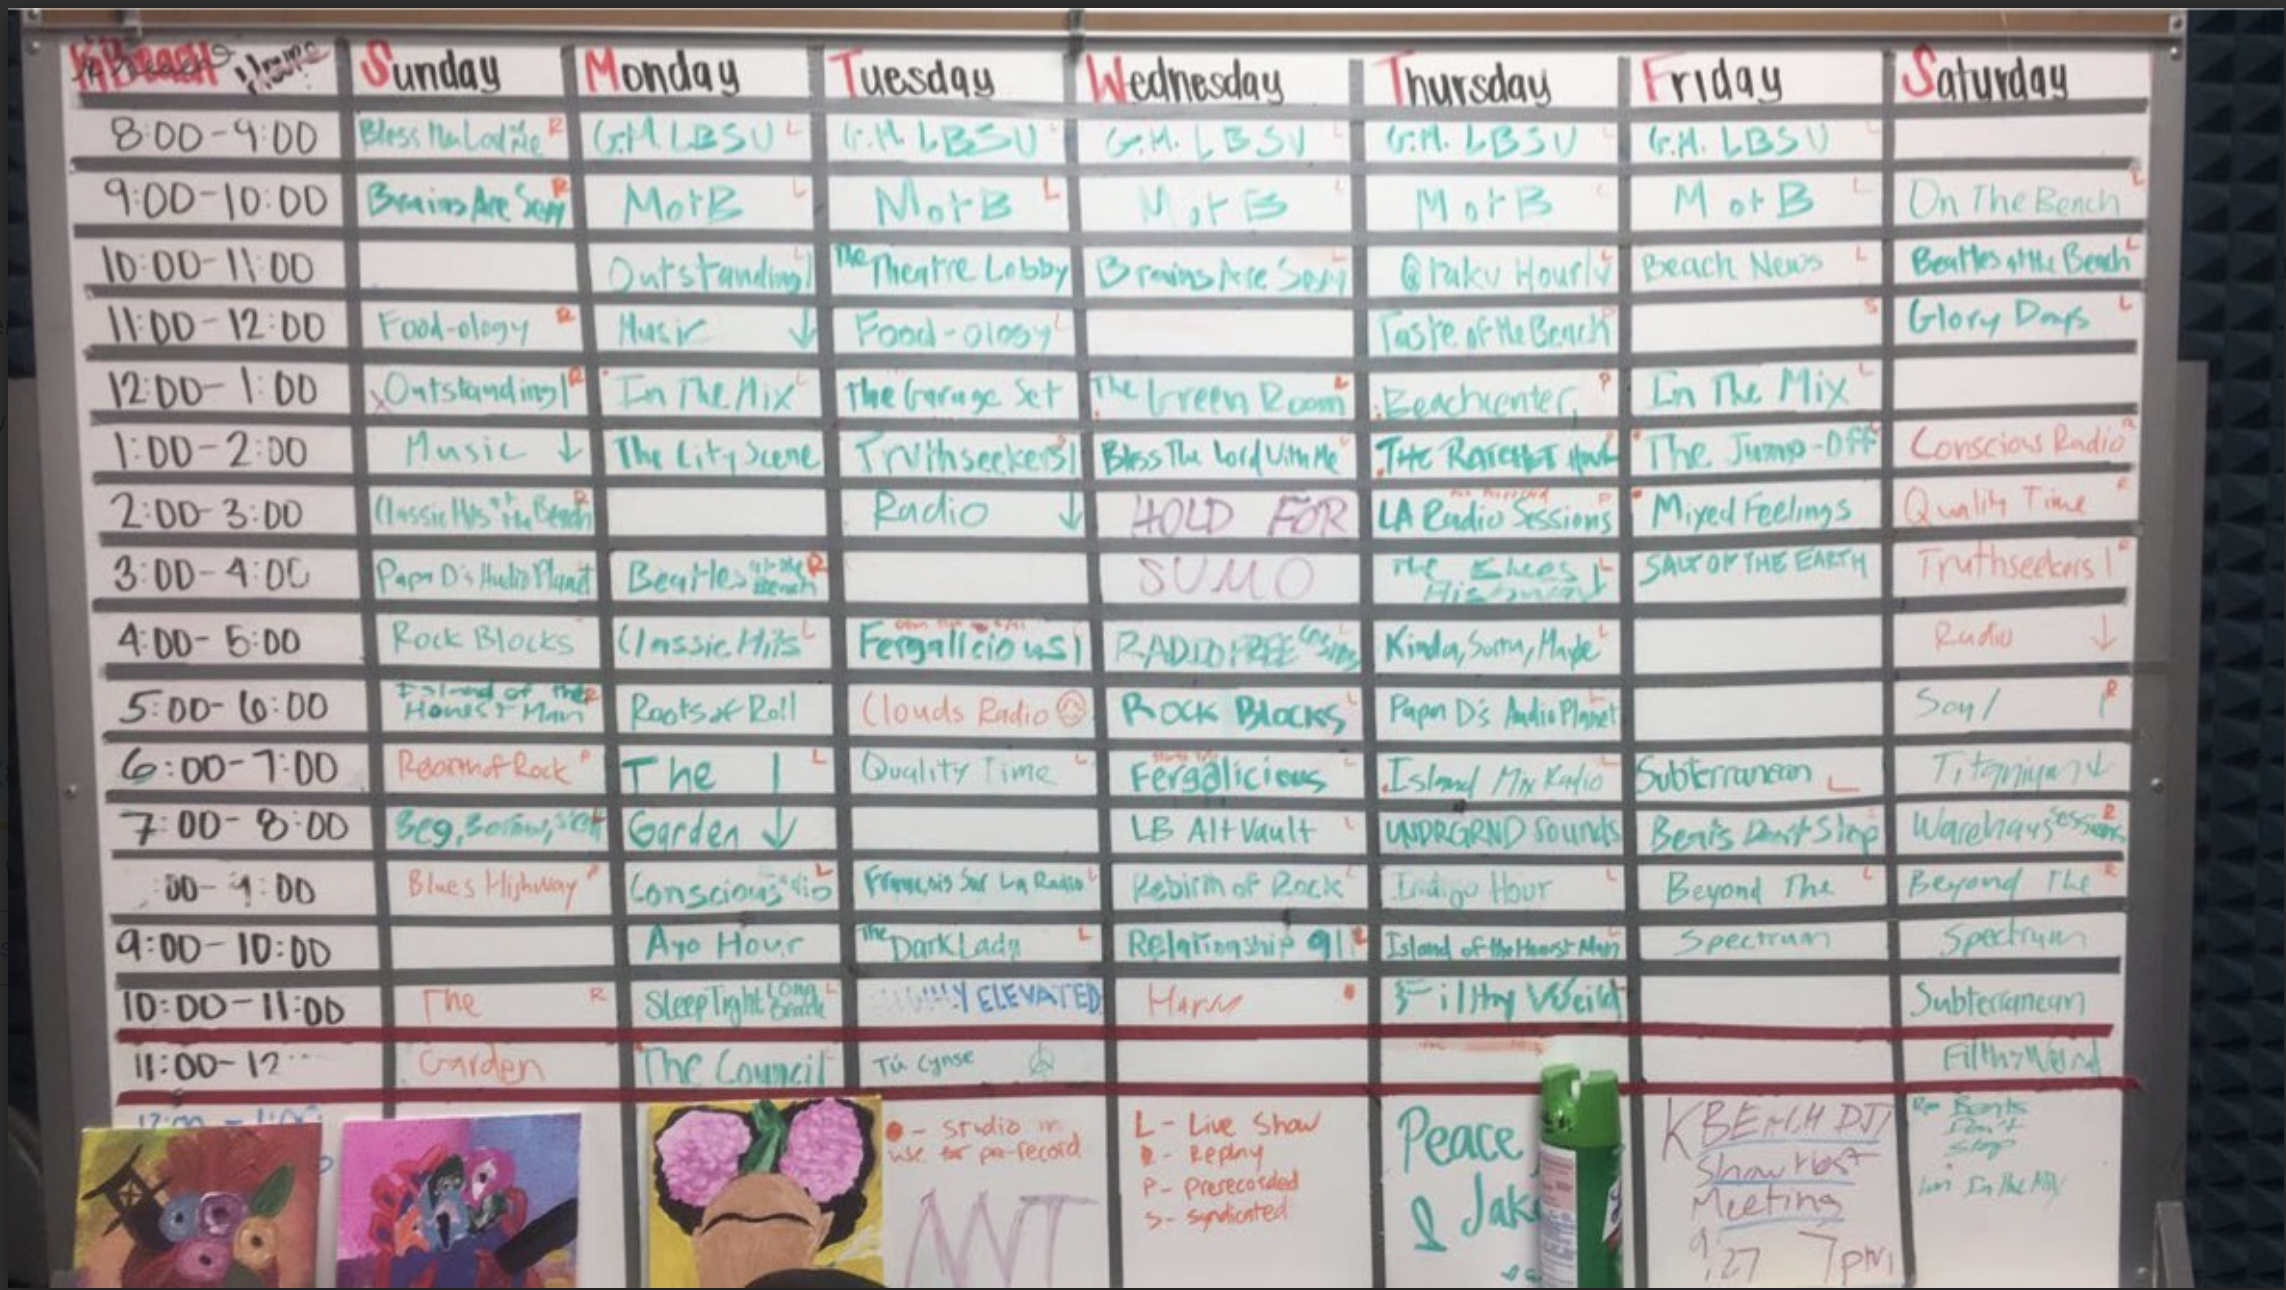 KBeach Sunday Monday Tuesday Wednesday Thursday Friday Saturday
8:00-9:00 Bless The Lord R G.M. LBSU L G.M. LBSU L G.M. LBSU G.M. LBSU G.M. LBSU L
9:00-10:00 Brains Are Sexy R MotB L MotB L MotB L MotB L MotB L On The Bench L
10:00-11:00 Outstanding! L The Theatre Lobby Brains Are Sexy L Otaku Hourly L Beach News L Beatles at the Beach L
11:00-12:00 Food-ology R Music ↓ Food-ology L Taste of the Beach S Glory Days L
12:00-1:00 Outstanding! R In The Mix L The Garage Set The Green Room L Beachcenter P In The Mix L
1:00-2:00 Music ↓ The City Scene Truthseekers Bless The Lord With Me THE RATCHET HOUR The Jump-Off Conscious Radio R
2:00-3:00 Classic Hits at the Beach R Radio ↓ HOLD FOR LA Radio Sessions P Mixed Feelings Quality Time R
3:00-4:00 Papa D's Audio Planet Beatles at the Beach R SUMO The L SALT OF THE EARTH Truthseekers R
4:00-5:00 Rock Blocks Classic Hits L Fergalicious RADIO FREE Kinda, Sorta, Maybe L Radio ↓
5:00-6:00 Island of the Honest Man R Roots of Roll Clouds Radio ROCK BLOCKS L Papa D's Audio Planet L Soul R
6:00-7:00 Rebirth of Rock P The L Quality Time L Fergalicious L Island Mix Radio L Subterranean L Titanium ↓
7:00-8:00 Beg, Borrow, Steal Garden ↓ LB Alt Vault L UNDRGRND Sounds Beats Don't Stop Warehouse Sessions R
:00-9:00 Blues Highway P Conscious L Francois Sur La Radio L Rebirth of Rock L Indigo Hour L Beyond The L Beyond The R
9:00-10:00 Ayo Hour The Dark Lady L Relationship 911 L Island of the Honest Man L Spectrum Spectrum
10:00-11:00 The R Sleep Tight Long Beach L ELEVATED Filthy Weird Subterranean
11:00-12 Garden The Council Tú Cynse Filthy Weird
12:00 - 1:00
● - studio in
use for pre-record
L - Live Show
R - Replay
P - Prerecorded
S - syndicated
Peace
& Jake
KBEACH DJ/
Show Host
Meeting
9/27 7pm
Beats
Don't
Stop
In the Mix